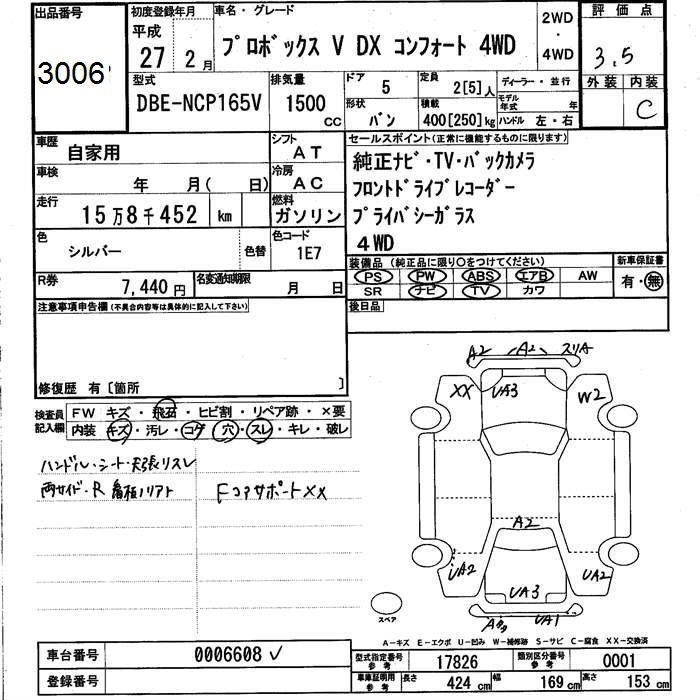 出品番号
3006
初度登録年月
平成
27 2 月
車名・グレード
プロボックス V DX コンフォート 4WD
2WD
・
4WD
評価点
3.5
外装 内装
C
型式
DBE-NCP165V
排気量
1500
CC
ドア 5
定員 2[5] 人
ディーラー・並行
モデル年式 年
形状 バン
積載 400[250] kg
ハンドル 左・右
車歴
自家用
シフト
AT
車検
年 月( 日)
冷房
AC
走行
15万8千452 km
燃料
ガソリン
色
シルバー
色替
色コード
1E7
R券
7,440 円
名変通知期限
月 日
セールスポイント(正常に機能するものに限ります)
純正ナビ・TV・バックカメラ
フロントドライブレコーダー
プライバシーガラス
4WD
装備品(純正品に限り○をつけてください)
新車保証書
PS PW ABS エアB AW
有・無
SR ナビ TV カワ
後日品
注意事項申告欄(不具合内容等は具体的に記入して下さい)
修復歴 有[箇所 ]
検査員
記入欄
FW キズ・飛石・ヒビ割・リペア跡・×要
内装 キズ・汚レ・コゲ・穴・スレ・キレ・破レ
ハンドル・シート・天張リスレ
両サイド・R
Fコアサポート××
A2 A2 スリA
XX UA3 W2
A2
UA2 UA3 UA2
UA1
スペア
A-キズ E-エクボ U-凹み W-補修跡 S-サビ C-腐食 XX-交換済
車台番号
0006608 ✓
登録番号
型式指定番号
参考
17826
類別区分番号
参考
0001
車庫証明用
参考
長さ 424 cm
幅 169 cm
高さ 153 cm